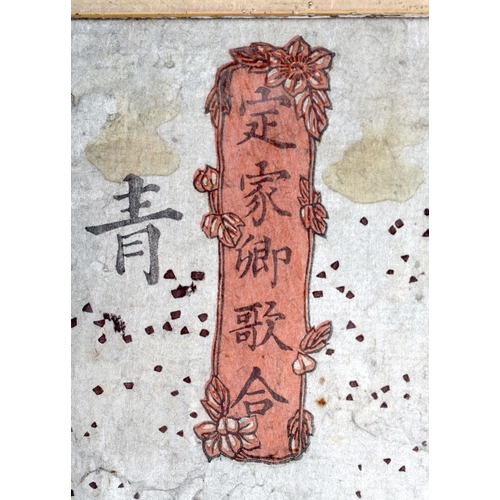 定家卿歌合
青